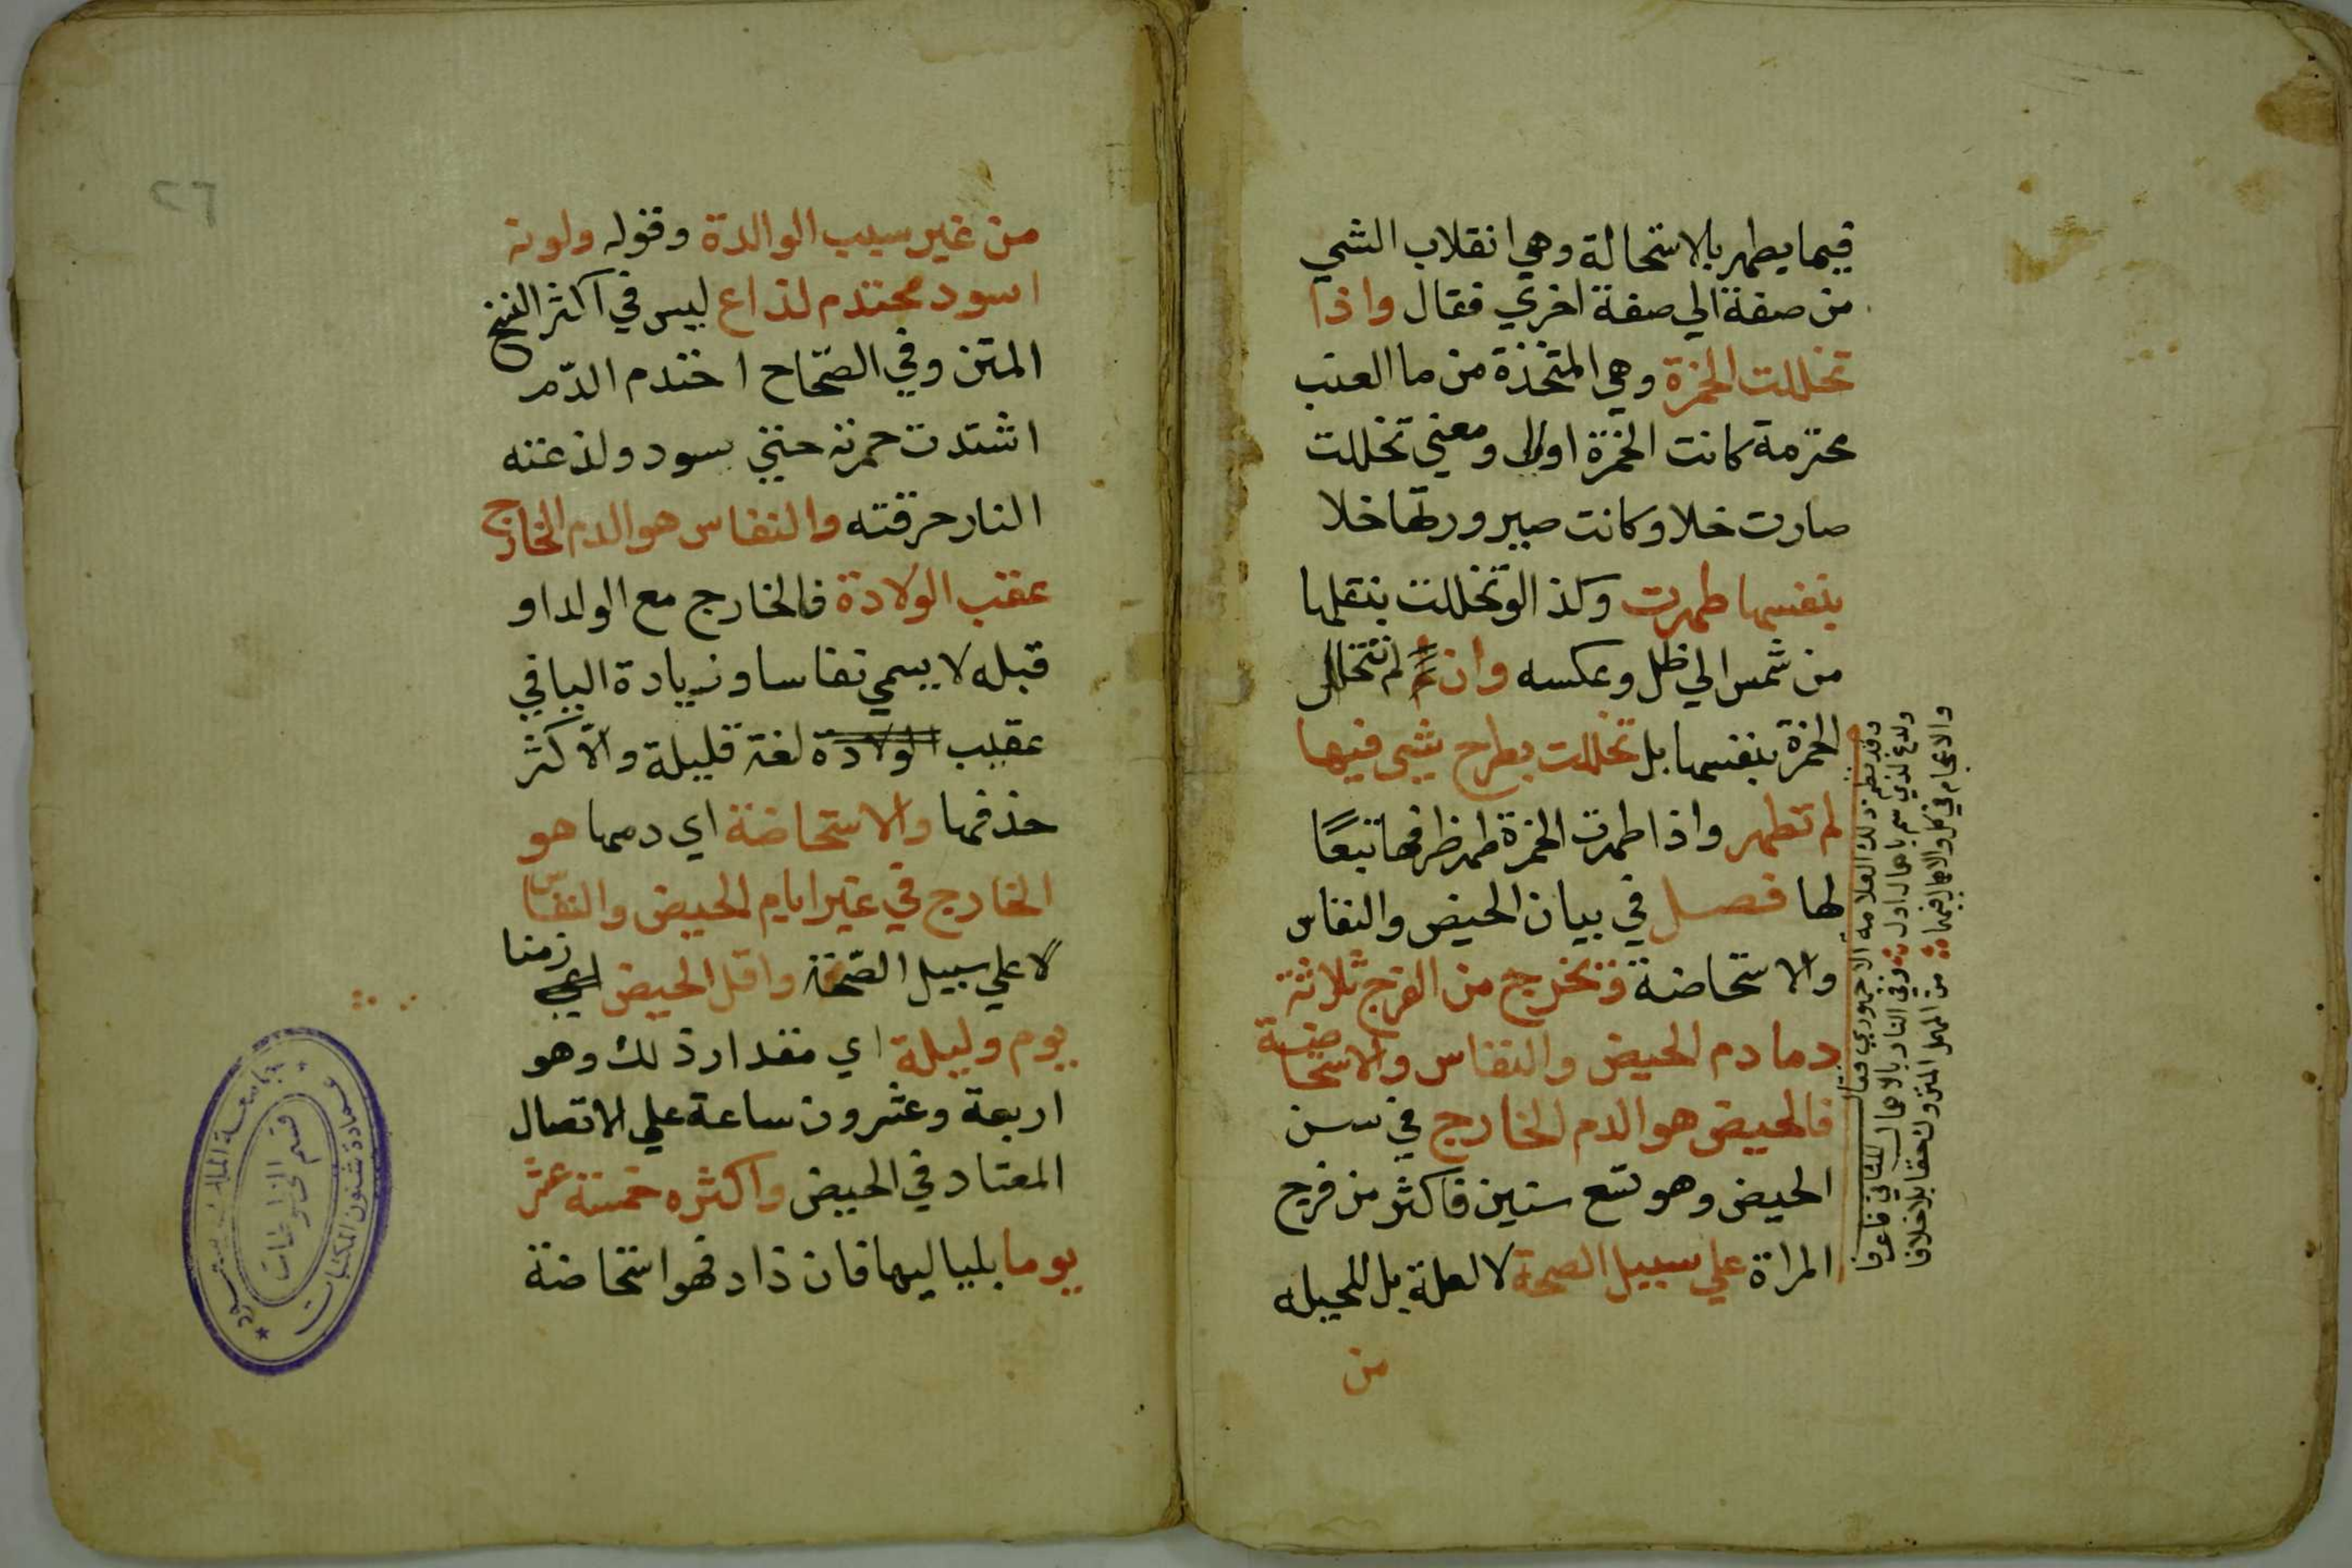 فيما يطهر بالاستحالة وهي انقلاب الشي
من صفة الي صفة اخري فقال واذا
تخللت الخمرة وهي المتخذة من ما العنب
محترمة كانت الخمرة اولا ومعني تخللت
صارت خلا وكانت صيرورتها خلا
بنفسها طهرت وكذا لو تخللت بنقلها
من شمس الي ظل وعكسه وان لم تتخلل
الخمرة بنفسها بل تخللت بطرح شي فيها
لم تطهر واذا طهرت الخمرة طهر ظرفها تبعًا
لها فصل في بيان الحيض والنفاس
والاستحاضة وتخرج من الفرج ثلاثة
دما دم الحيض والنفاس والاستحاضة
فالحيض هو الدم الخارج في سن
الحيض وهو تسع سنين فاكثر من فرج
المراة علي سبيل الصحة لا لعلة بل للجبلة
من
وقد نظم ذلك العلامة الاجهوري فقال
ولدغ لذي سم باهمال اول وفي النار بالاهمال للثاني فاعرفا
والاعجام في كل والاهمال فيهما من المهمل المتروك حقا بلا خلافا
٢٦
من غير سبب الوالدة وقوله ولونه
اسود محتدم لذاع ليس في اكثر النسخ
المتن وفي الصّحاح احتدم الدّم
اشتدت حمرته حتي يسود ولذعته
النار حرقته والنفاس هو الدم الخارج
عقب الولادة فالخارج مع الولد او
قبله لا يسمي نفاسا وزيادة اليا في
عقيب الولادة لغة قليلة والاكثر
حذفها والاستحاضة اي دمها هو
الخارج في غير ايام الحيض والنفاس
لا علي سبيل الصّحة واقل الحيض زمنا
يوم وليلة اي مقدار ذلك وهو
اربعة وعشرون ساعة علي الاتصال
المعتاد في الحيض واكثره خمسة عشر
يوما بلياليها فان زاد فهو استحاضة
عمادة شئون المكتبات
قسم المخطوطات